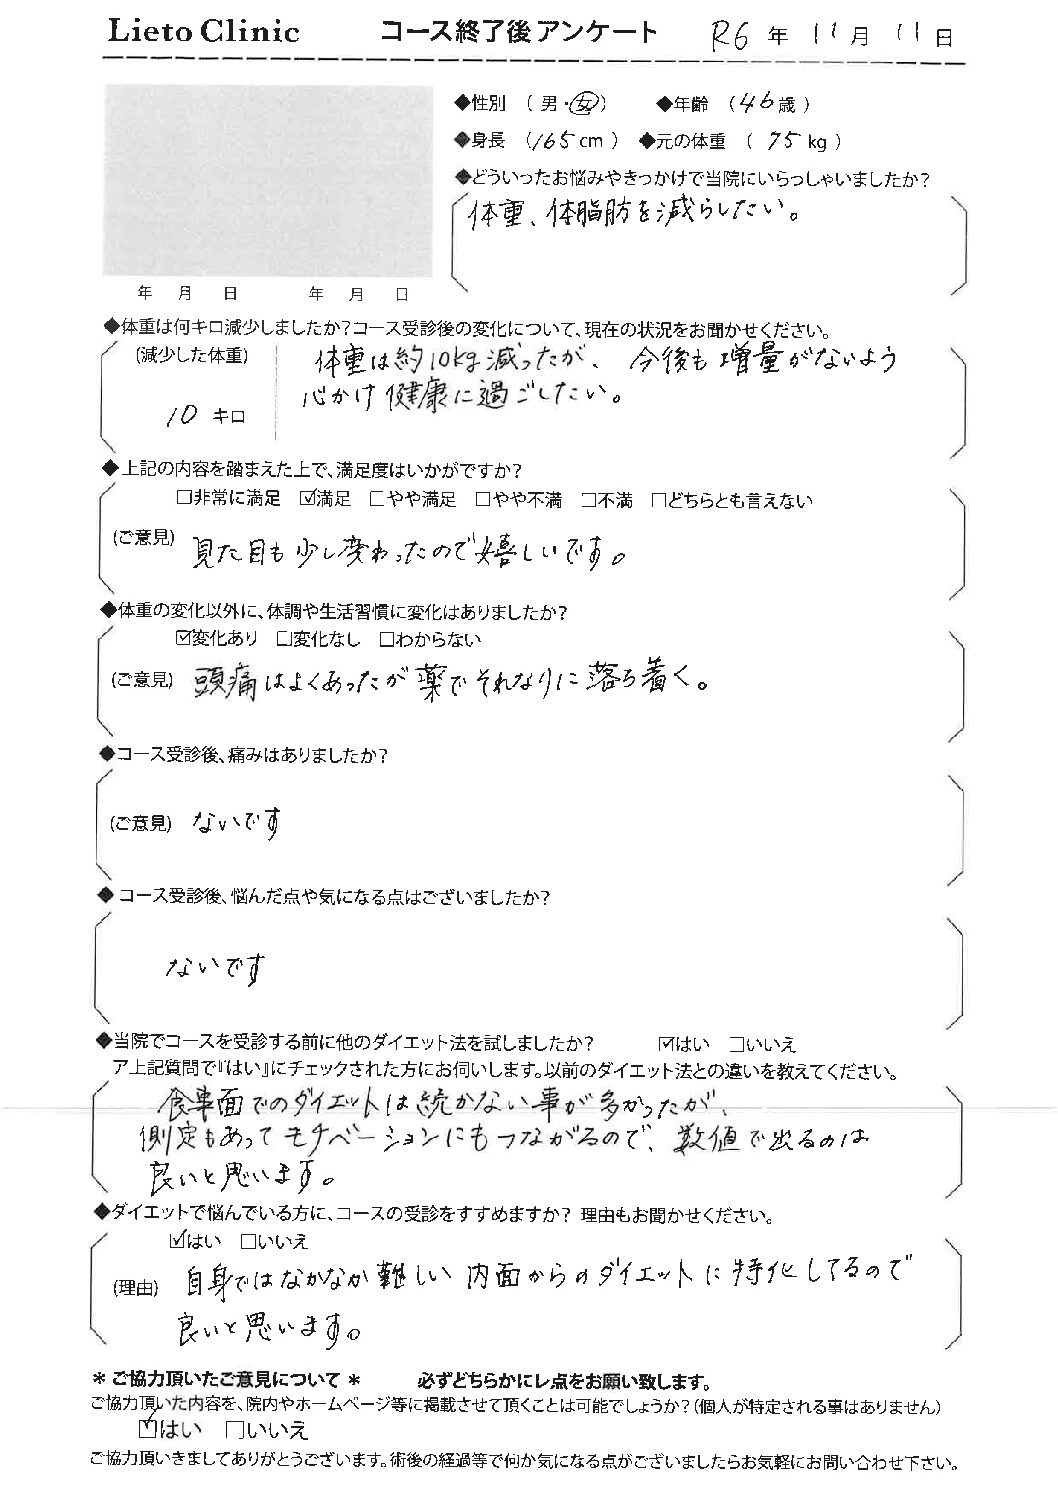 Lieto Clinic コース終了後アンケート R6年 11月 11日
◆性別 (男・女) ◆年齢 (46歳)
◆身長 (165cm) ◆元の体重 (75kg)
◆どういったお悩みやきっかけで当院にいらっしゃいましたか?
体重、体脂肪を減らしたい。
年 月 日 年 月 日
◆体重は何キロ減少しましたか?コース受診後の変化について、現在の状況をお聞かせください。
(減少した体重) 体重は約10kg減ったが、今後も増量がないよう
心かけ健康に過ごしたい。
10キロ
◆上記の内容を踏まえた上で、満足度はいかがですか?
□非常に満足 ☑満足 □やや満足 □やや不満 □不満 □どちらとも言えない
(ご意見) 見た目も少し変わったので嬉しいです。
◆体重の変化以外に、体調や生活習慣に変化はありましたか?
☑変化あり □変化なし □わからない
(ご意見) 頭痛はよくあったが薬でそれなりに落ち着く。
◆コース受診後、痛みはありましたか?
(ご意見) ないです
◆コース受診後、悩んだ点や気になる点はございましたか?
ないです
◆当院でコースを受診する前に他のダイエット法を試しましたか? ☑はい □いいえ
ア上記質問で『はい』にチェックされた方にお伺いします。以前のダイエット法との違いを教えてください。
食事面でのダイエットは続かない事が多かったが、
測定もあってモチベーションにもつながるので、数値で出るのは
良いと思います。
◆ダイエットで悩んでいる方に、コースの受診をすすめますか? 理由もお聞かせください。
☑はい □いいえ
(理由) 自身ではなかなか難しい内面からのダイエットに特化してるので
良いと思います。
＊ご協力頂いたご意見について＊ 必ずどちらかにレ点をお願い致します。
ご協力頂いた内容を、院内やホームページ等に掲載させて頂くことは可能でしょうか?(個人が特定される事はありません)
☑はい □いいえ
ご協力頂いきましてありがとうございます。術後の経過等で何か気になる点がございましたらお気軽にお問い合わせ下さい。